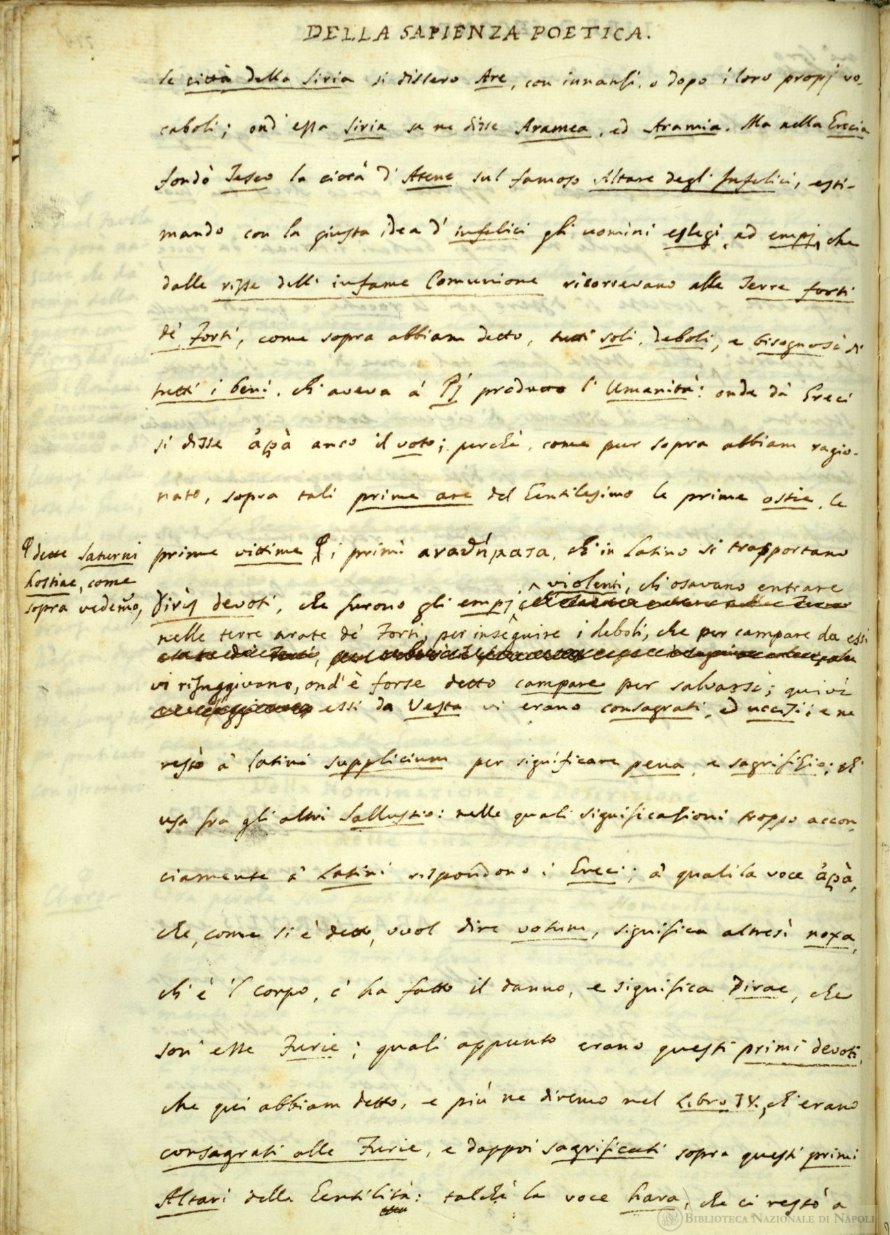 DELLA SAPIENZA POETICA.
le città della Siria si dissero Are, con innanzi, o dopo i loro propj vo-
caboli; ond' essa Siria se ne disse Aramea, ed Aramia. Ma nella Grecia
fondò Teseo la città d' Atene sul famoso Altare degl' Infelici, esti-
mando con la giusta idea d' infelici gli uomini eslegi, ed empj, che
dalle risse dell' infame Comunione ricorrevano alle Terre forti
de' Forti, come sopra abbiam detto, tutti soli, deboli, e bisognosi di
tutti i beni, ch' aveva a' Pj prodotto l' Umanità: onde da' Greci
si disse ἀρὰ anco il voto; perchè, come pur sopra abbiam ragio-
nato, sopra tali prime are del Gentilesimo le prime ostie, le
prime vittime φ i primi αναθήματα, ch' in Latino si trasportano
φ dette Saturni
hostiae, come
sopra vedemo,
Diris devoti, che furono gli empj violenti, ch' osavano entrare
nelle terre arate de' Forti, per inseguire i deboli, che per campare da essi
vi rifuggivano, ond' è forse detto campare per salvarsi; quivi
essi da Vesta vi erano consagrati, ed uccisi; e ne
restò a' Latini supplicium per significare pena, e sagrifizio; ch'
usa fra gli altri Sallustio: nelle quali significazioni troppo accon-
ciamente a' Latini rispondono i Greci; a' quali la voce ἀρὰ,
che, come si è detto, vuol dire votum, significa altresì noxa,
ch' è 'l corpo, c' ha fatto il danno, e significa Dirae, che
son' esse Furie; quali appunto erano questi primi devoti,
che qui abbiam detto, e più ne diremo nel Libro IV., ch' erano
consagrati alle Furie, e dappoi sagrificati sopra questi primi
Altari della Gentilità: talchè la voce hara, che ci restò a
BIBLIOTECA NAZIONALE DI NAPOLI